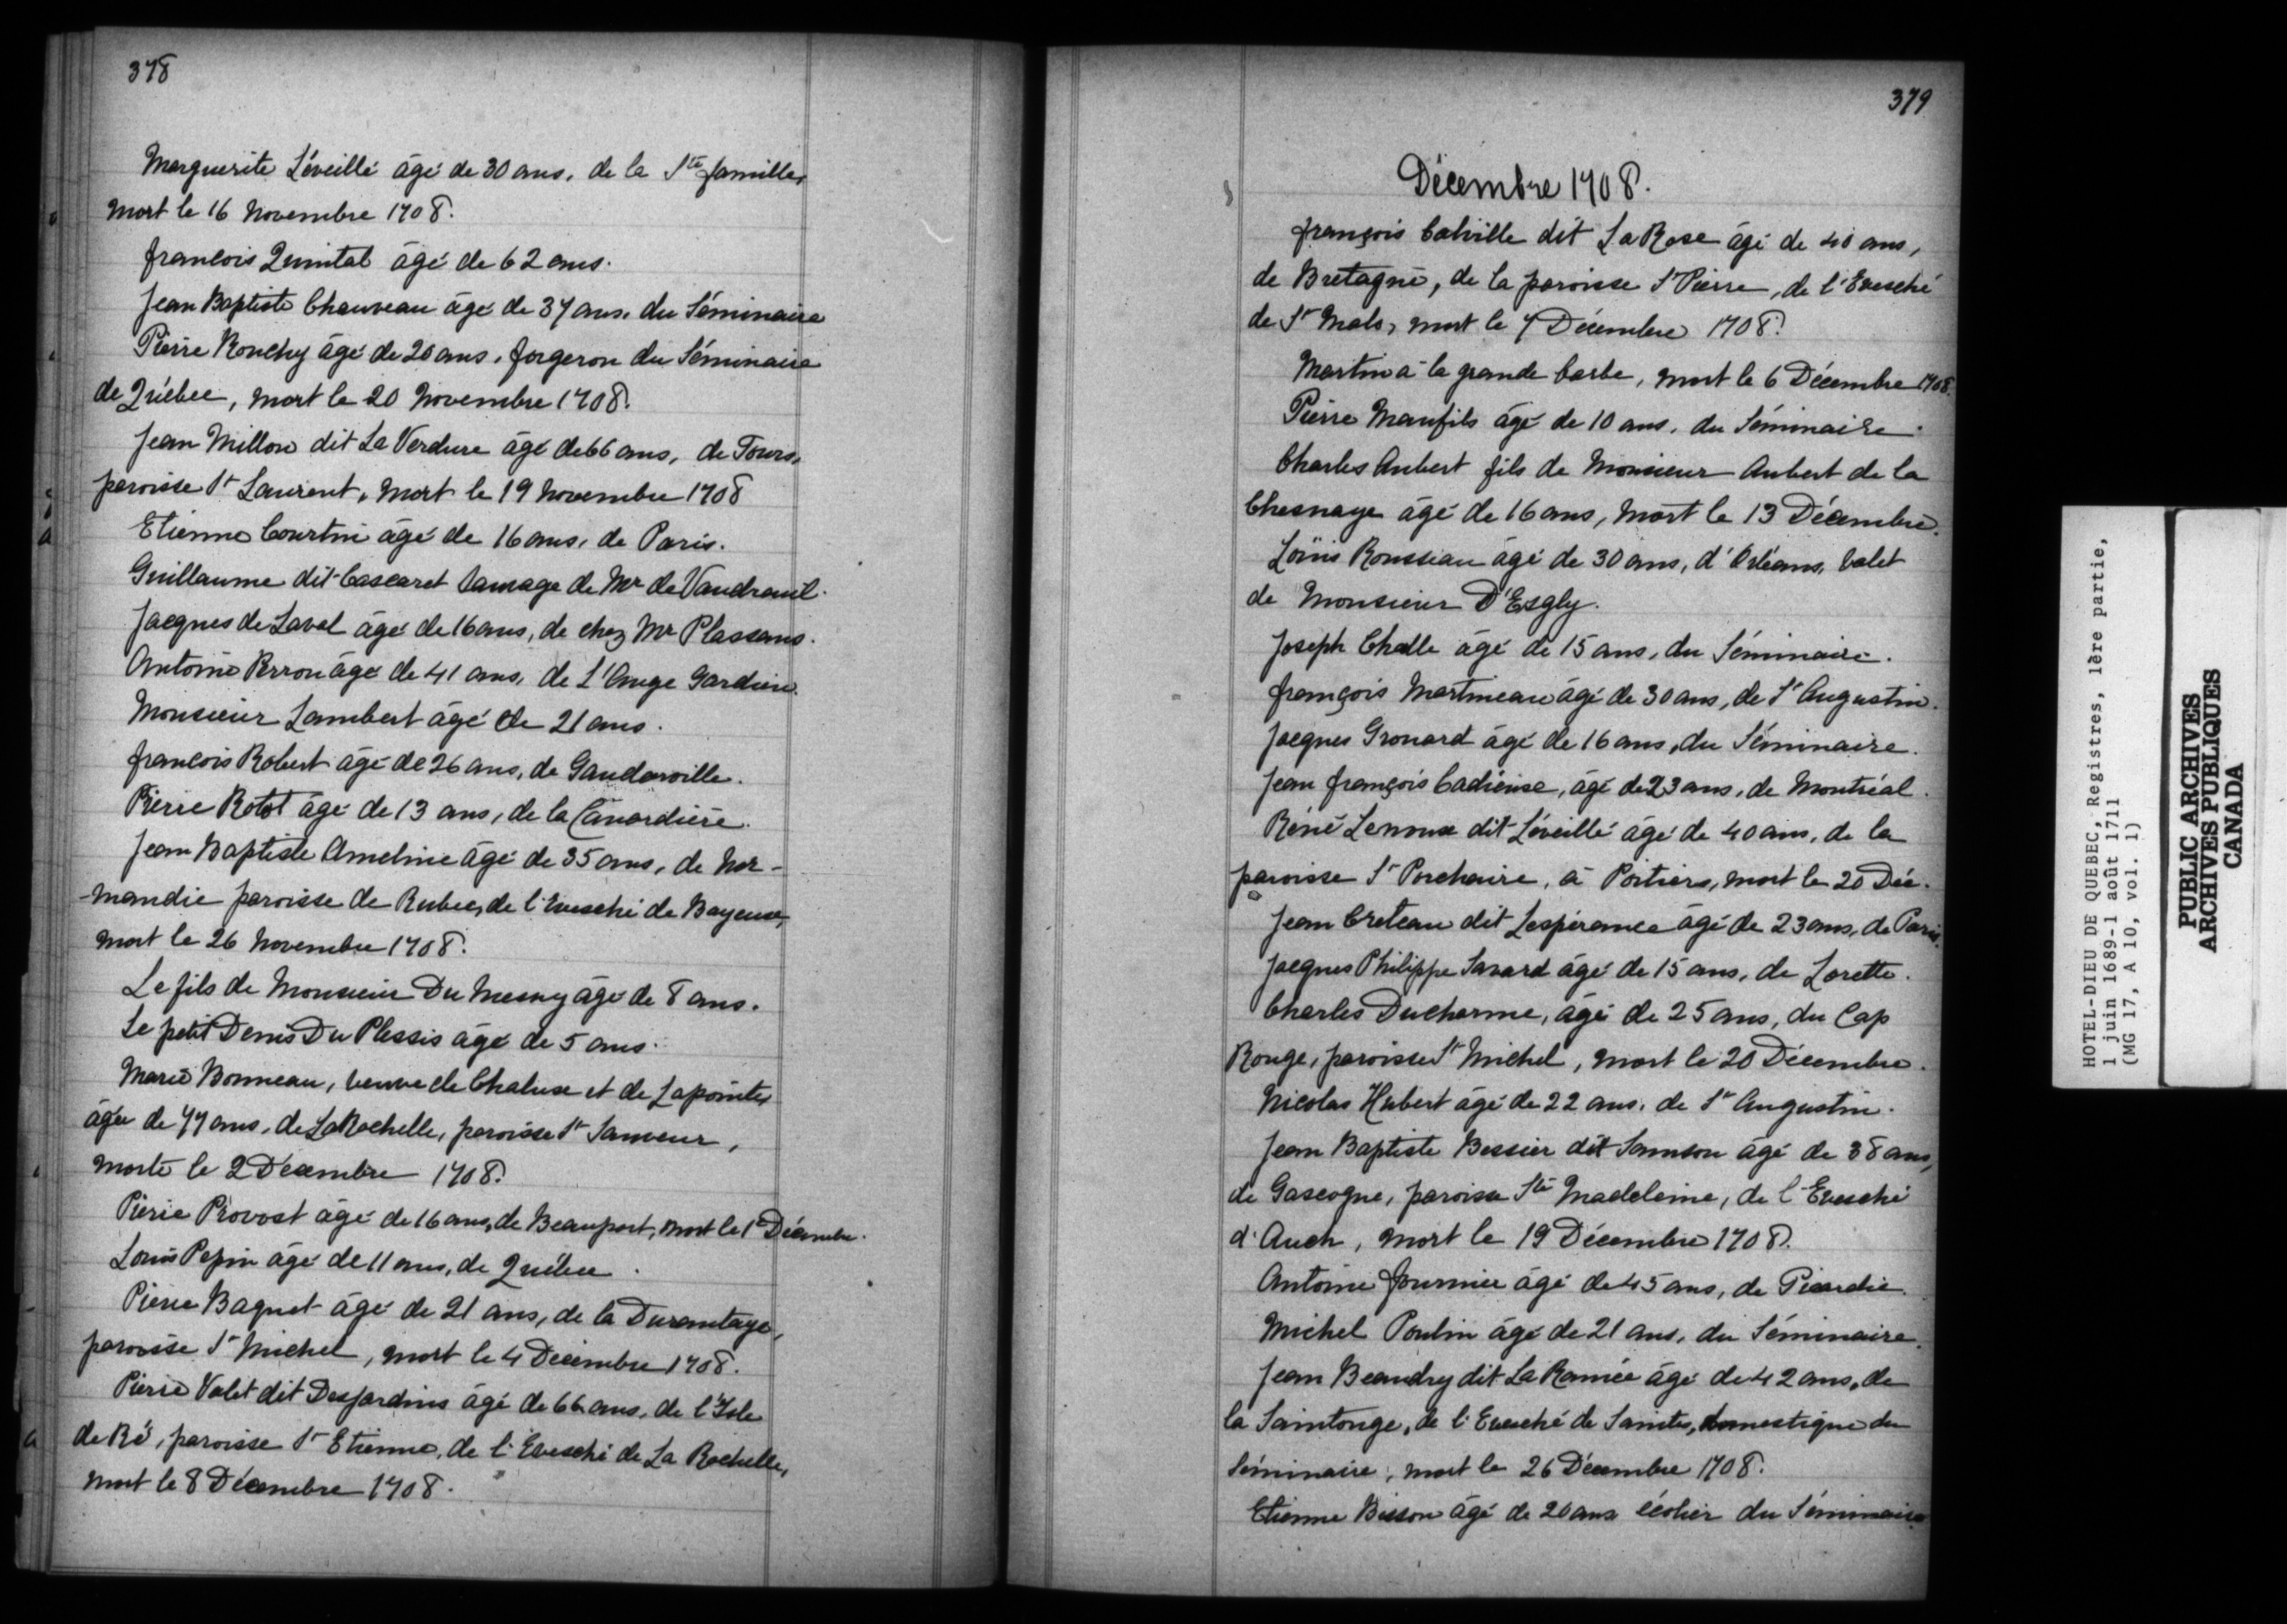 378
Marguerite Léveillé âgé de 30 ans, de la Ste famille,
mort le 16 Novembre 1708.
francois Quintal âgé de 62 ans.
Jean Baptiste Chauveau âgé de 37 ans, du Séminaire
Pierre Rouchy âgé de 20 ans, forgeron du Séminaire
de Québec, mort le 20 Novembre 1708.
Jean Millon dit La Verdure âgé de 66 ans, de Tours,
paroisse St Laurent, mort le 19 Novembre 1708
Etienne Courtin âgé de 16 ans, de Paris.
Guillaume dit Cascaret Sauvage de Mr de Vaudreuil.
Jacques de Laval âgé de 16 ans, de chez Mr Plassans.
Antoine Perron âgé de 41 ans, de L'Ange Gardien.
Monsieur Lambert âgé de 21 ans.
francois Robert âgé de 26 ans, de Gauderville.
Pierre Rotot âgé de 13 ans, de la Canardière.
Jean Baptiste Ameline âgé de 35 ans, de Nor-
-mandie paroisse de Rubec, de l'Evesché de Bayeux,
mort le 26 Novembre 1708.
Le fils de Monsieur Du Mesny âgé de 8 ans.
Le petit Denis Du Plessis âgé de 5 ans.
Marie Bonneau, veuve de Chalux et de Lapointe,
âgée de 77 ans, de La Rochelle, paroisse St Sauveur,
morte le 2 Décembre 1708.
Pierre Provost âgé de 16 ans, de Beauport, mort le 1er Décembre.
Louis Pepin âgé de 11 ans, de Québec.
Pierre Baquet âgé de 21 ans, de la Durantaye,
paroisse St Michel, mort le 4 Décembre 1708.
Pierre Valet dit Desjardins âgé de 66 ans, de l'Isle
de Ré, paroisse St Etienne, de l'Evesché de La Rochelle,
mort le 8 Décembre 1708.
379
Décembre 1708.
françois Calville dit La Rose âgé de 40 ans,
de Bretagne, de la paroisse St Pierre, de l'Evesché
de St Malo, mort le 7 Décembre 1708.
Martin à la grande barbe, mort le 6 Décembre 1708.
Pierre Maufils âgé de 10 ans, du Séminaire.
Charles Aubert fils de Monsieur Aubert de la
Chesnaye âgé de 16 ans, mort le 13 Décembre.
Loüis Rousseau âgé de 30 ans, d'Orléans, valet
de Monsieur D'Esgly.
Joseph Challe âgé de 15 ans, du Séminaire.
françois Martineau âgé de 30 ans, de St Augustin.
Jacques Gronard âgé de 16 ans, du Séminaire.
Jean françois Cadieux, âgé de 23 ans, de Montréal.
Réné Lenoux dit Léveillé âgé de 40 ans, de la
paroisse St Porchaire, à Poitiers, mort le 20 Déc.
Jean Creteau dit Lespérance âgé de 23 ans, de Paris.
Jacques Philippe Savard âgé de 15 ans, de Lorette.
Charles Ducharme, âgé de 25 ans, du Cap
Rouge, paroisse St Michel, mort le 20 Décembre.
Nicolas Hubert âgé de 22 ans, de St Augustin.
Jean Baptiste Bessier dit Samson âgé de 38 ans,
de Gascogne, paroisse Ste Madeleine, de l'Evesché
d'Auch, mort le 19 Décembre 1708.
Antoine fournier âgé de 45 ans, de Picardie.
Michel Poulin âgé de 21 ans, du Séminaire.
Jean Beaudry dit La Ramée âgé de 42 ans, de
la Saintonge, de l'Evesché de Saintes, domestique du
Séminaire, mort le 26 Décembre 1708.
Etienne Bisson âgé de 20 ans écolier du Séminaire
HOTEL-DIEU DE QUEBEC, Registres, 1ère partie,
1 juin 1689-1 août 1711
(MG 17, A 10, vol. 1)
PUBLIC ARCHIVES
ARCHIVES PUBLIQUES
CANADA